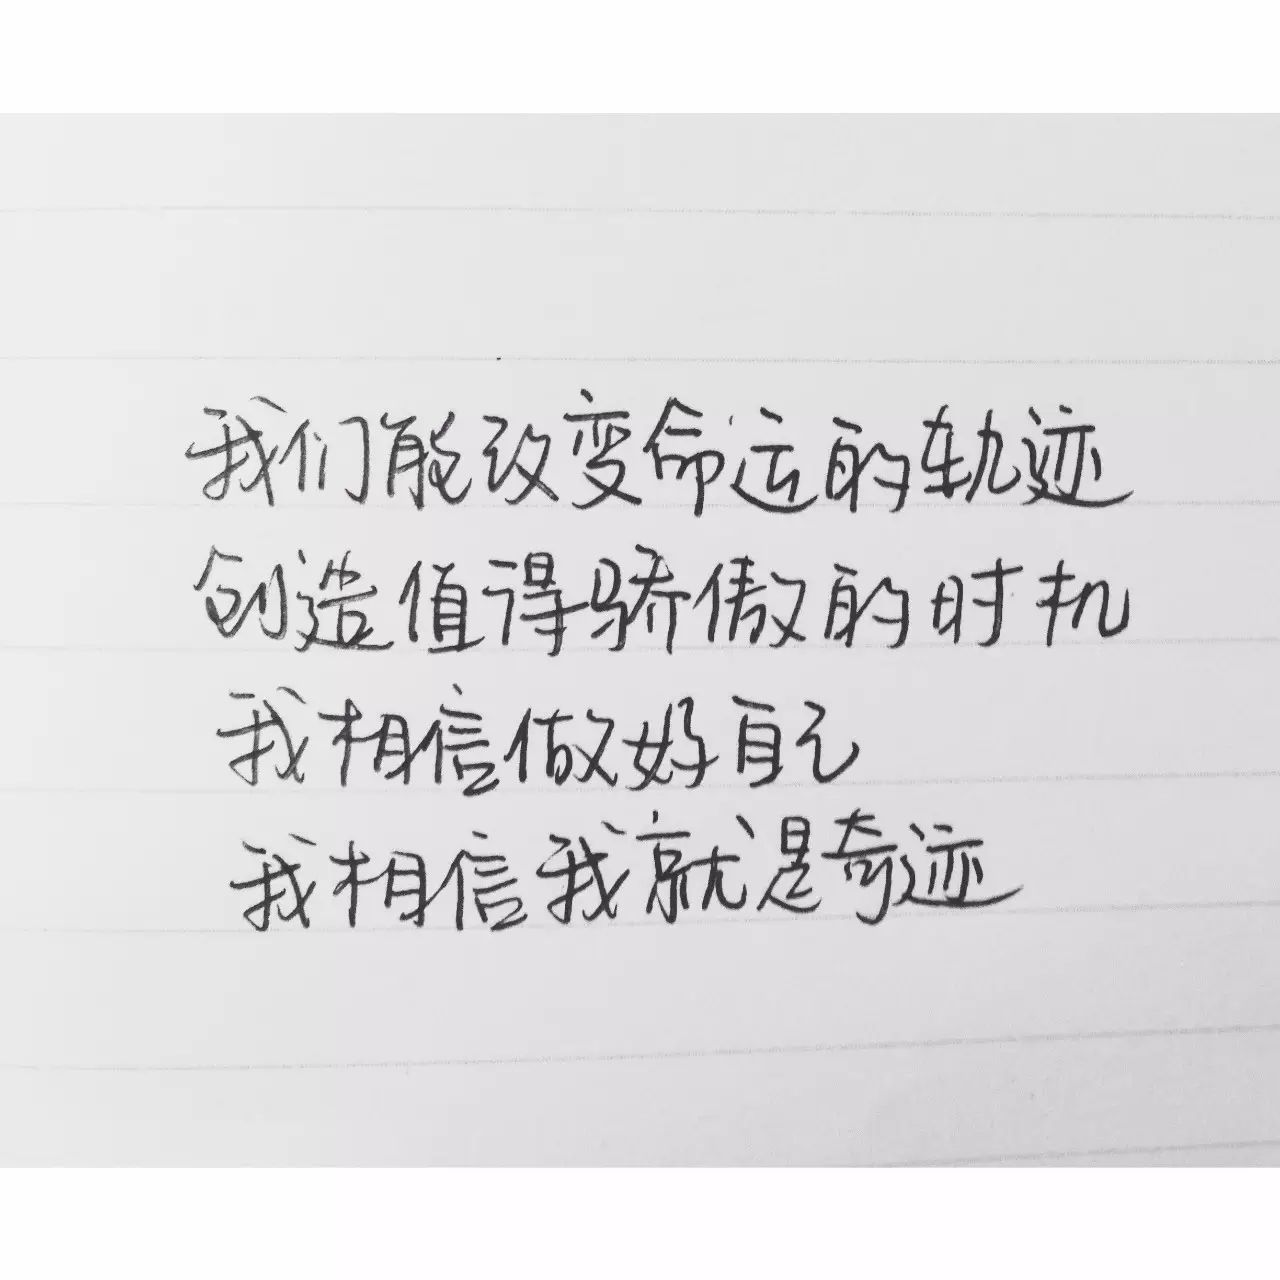 我们能改变命运的轨迹
创造值得骄傲的时机
我相信做好自己
我相信我就是奇迹